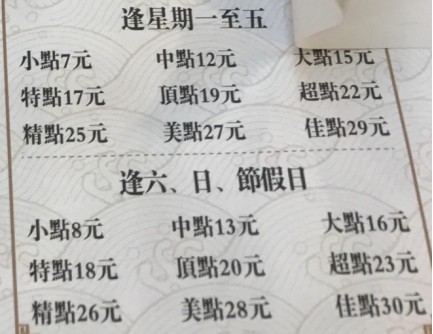 逢星期一至五
小點7元 中點12元 大點15元
特點17元 頂點19元 超點22元
精點25元 美點27元 佳點29元
逢六、日、節假日
小點8元 中點13元 大點16元
特點18元 頂點20元 超點23元
精點26元 美點28元 佳點30元